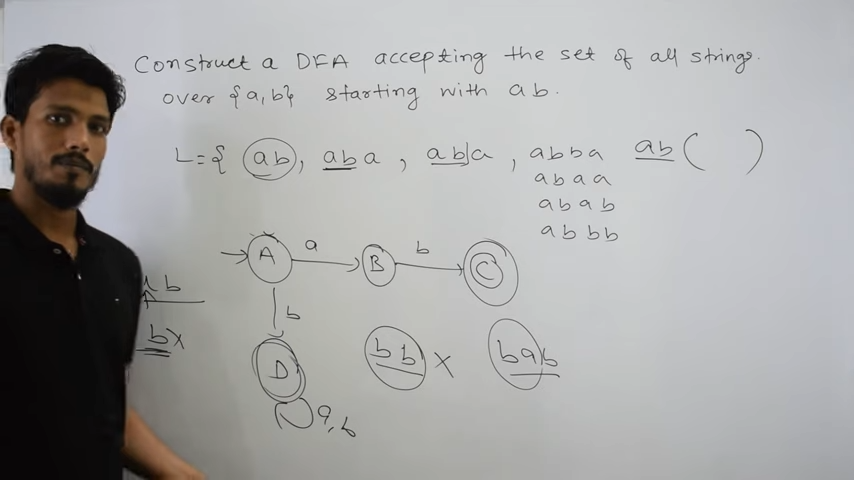 Construct a DFA accepting the set of all strings
over {a,b} starting with ab.
L={ ab, aba, aba, abba ab( )
abaa
abab
abbb
A a B b C
b
ab
bX
D
bb X bab
a,b